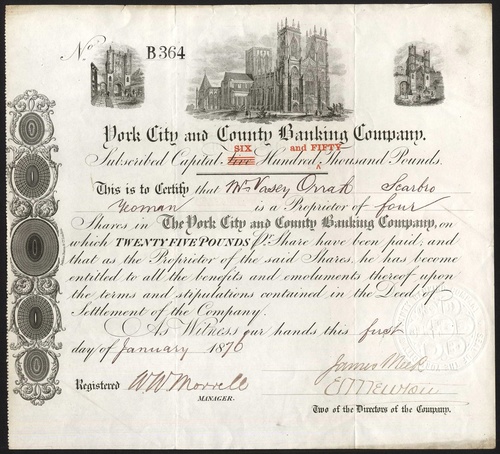 No. B364
York City and County Banking Company.
SIX and FIFTY
Subscribed Capital five Hundred Thousand Pounds.
This is to Certify that Mr Vasey Orrah Scarbro
Yeoman is a Proprietor of four
Shares in The York City and County Banking Company, on
which TWENTY FIVE POUNDS pr. Share have been paid; and
that as the Proprietor of the said Shares, he has become
entitled to all the benefits and emoluments thereof upon
the terms and stipulations contained in the Deed of
Settlement of the Company.
As Witness our hands this first
day of January 1876
James Meek
Registered W W Morrell
MANAGER.
Two of the Directors of the Company.